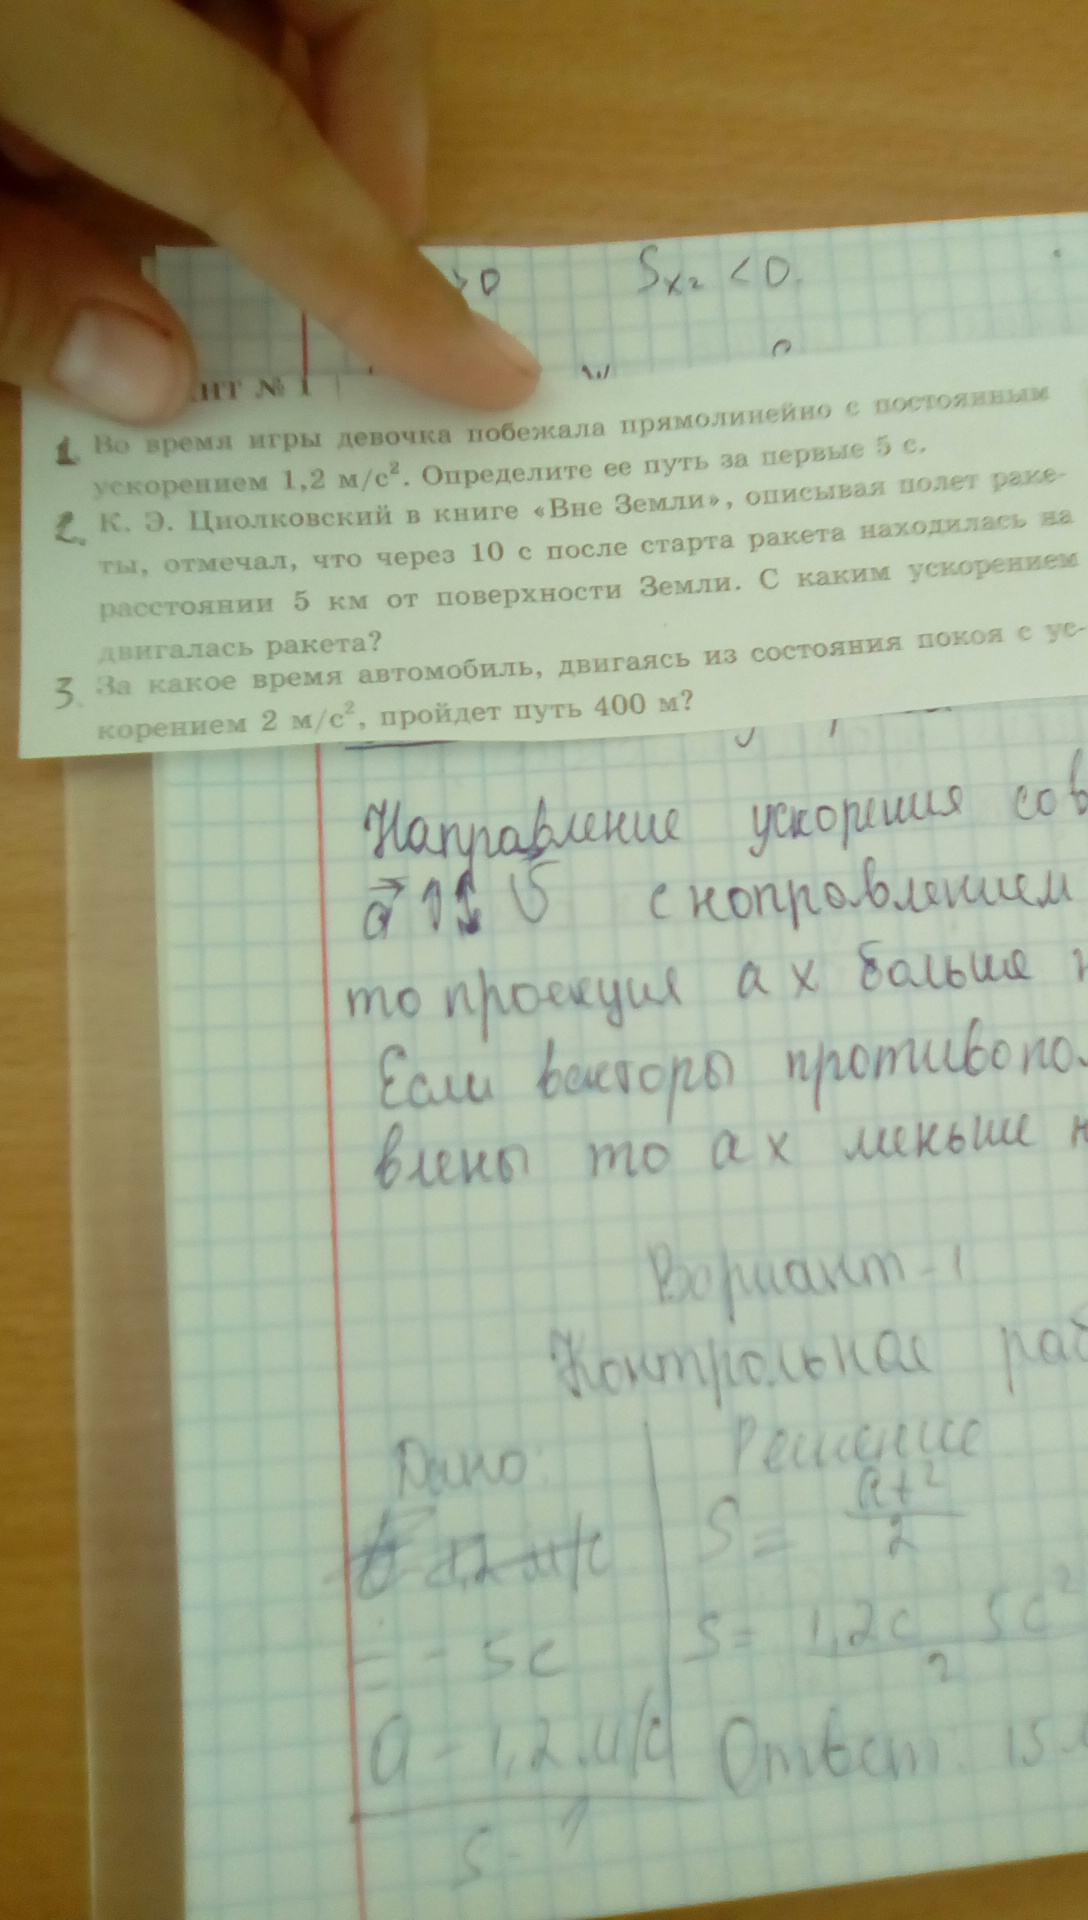 >0 Sx₂ <0.
НТ № 1
1. Во время игры девочка побежала прямолинейно с постоянным
ускорением 1,2 м/с². Определите ее путь за первые 5 с.
2. К. Э. Циолковский в книге «Вне Земли», описывая полет раке-
ты, отмечал, что через 10 с после старта ракета находилась на
расстоянии 5 км от поверхности Земли. С каким ускорением
двигалась ракета?
3. За какое время автомобиль, двигаясь из состояния покоя с ус-
корением 2 м/с², пройдет путь 400 м?
Направление ускорения сов
с ноправлением
то проекция а х больше н
Если векторы противопол
влены то а х меньше н
Вориант - 1
Контрольная раб
Дано: Решение
S = at²/2
t - 5с S = 1,2с 5с²/2
a - 1,2 м/с Ответ: 15 м
S - ?